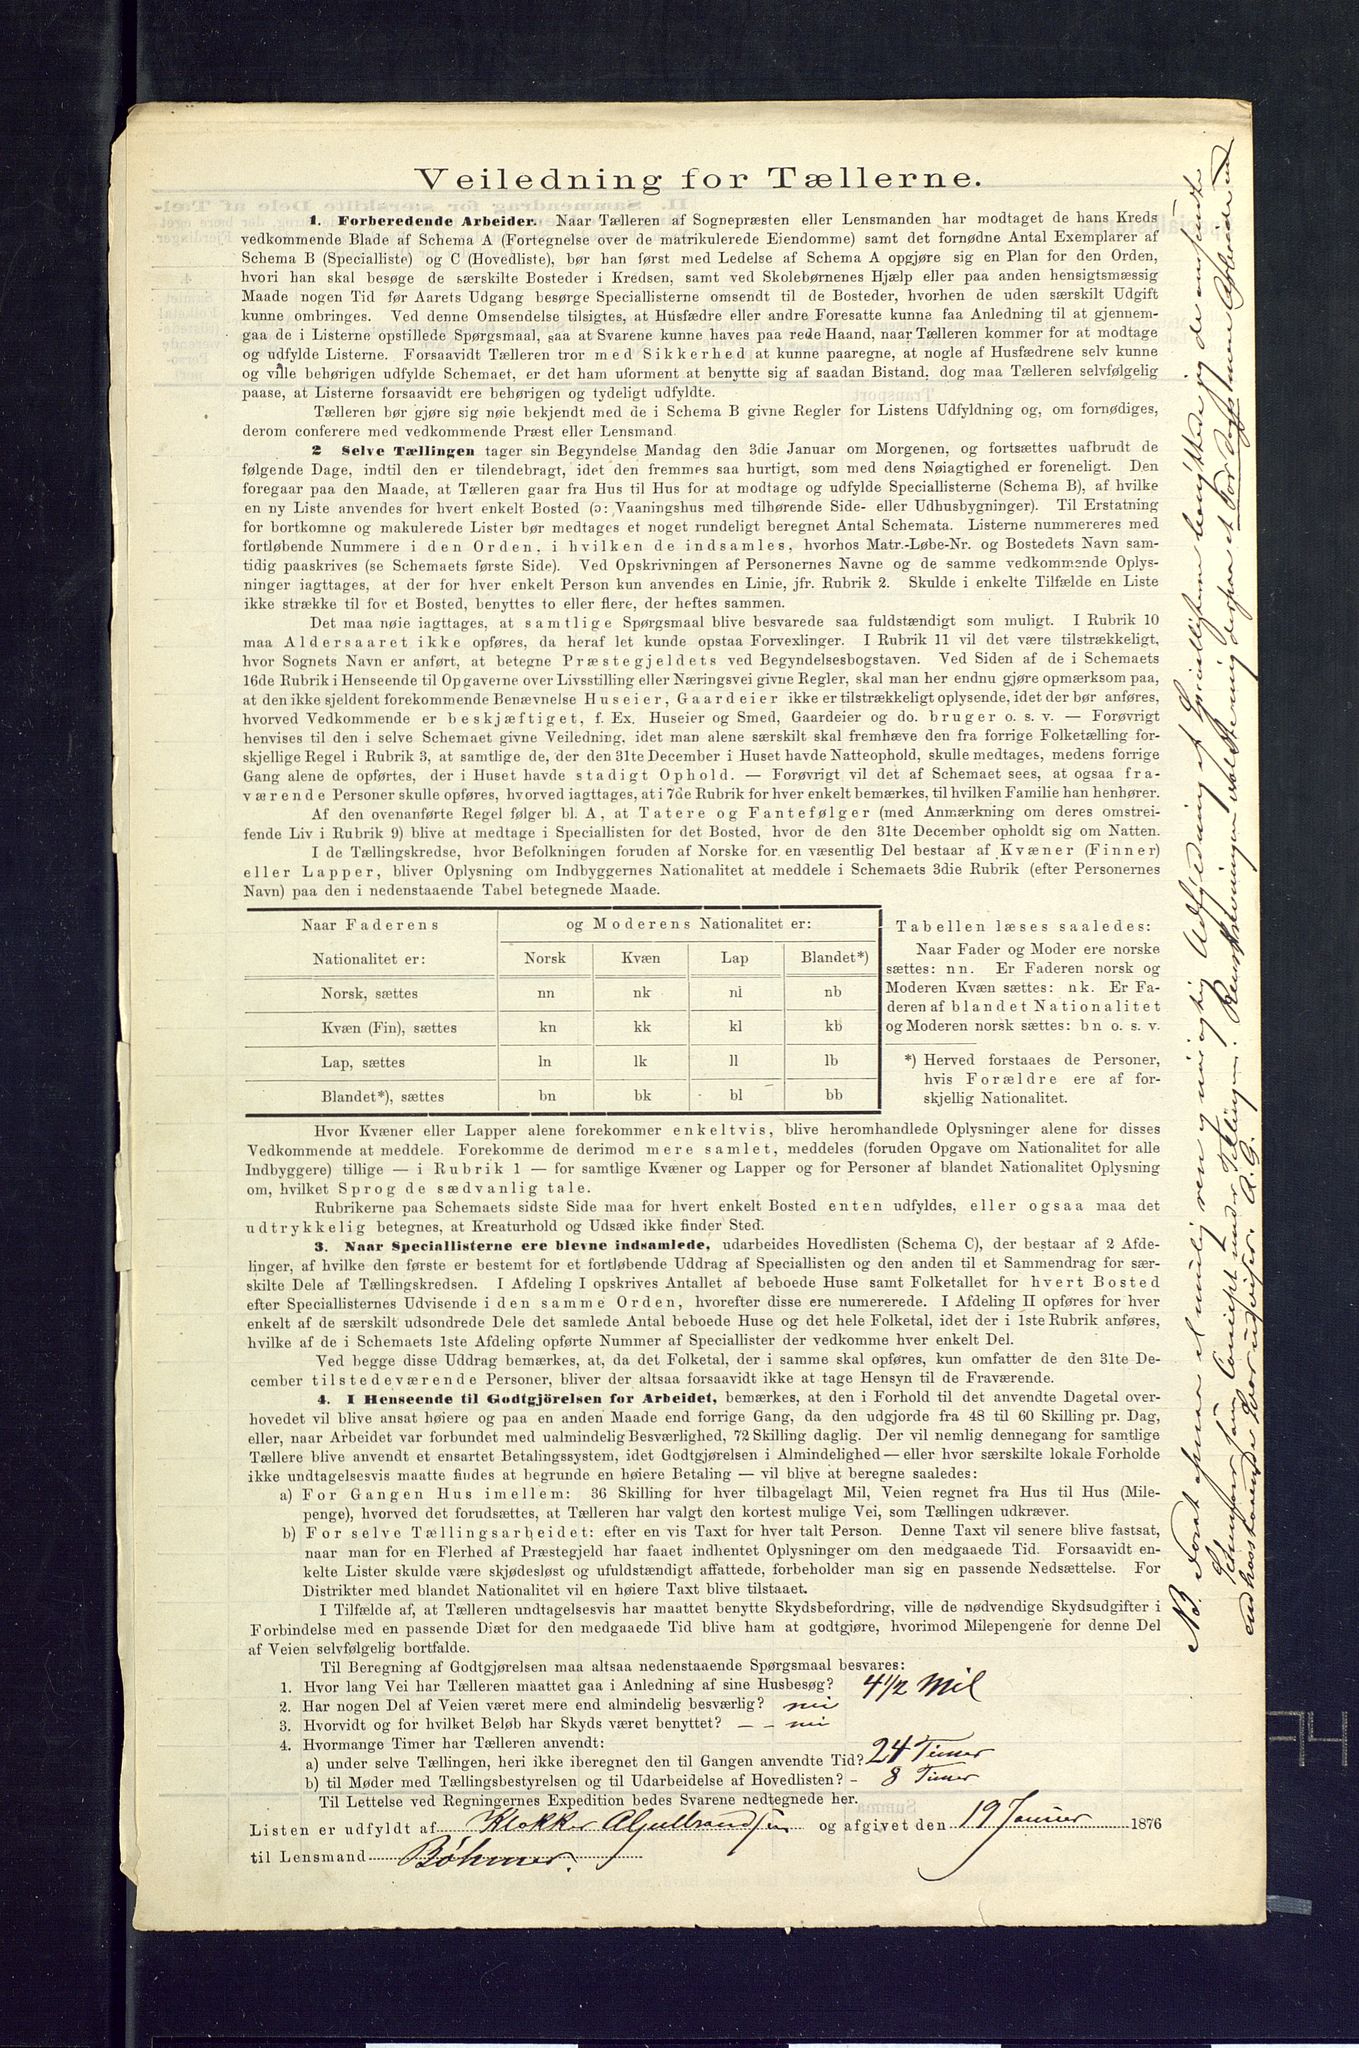 Veiledning for Tællerne.
1. Forberedende Arbeider. Naar Tælleren af Sognepræsten eller Lensmanden har modtaget de hans Kreds
vedkommende Blade af Schema A (Fortegnelse over de matrikulerede Eiendomme) samt det fornødne Antal Exemplarer af
Schema B (Specialliste) og C (Hovedliste), bør han først med Ledelse af Schema A opgjøre sig en Plan for den Orden,
hvori han skal besøge de særskilte Bosteder i Kredsen, samt ved Skolebørnenes Hjælp eller paa anden hensigtsmæssig
Maade nogen Tid før Aarets Udgang besørge Speciallisterne omsendt til de Bosteder, hvorhen de uden særskilt Udgift
kunne ombringes. Ved denne Omsendelse tilsigtes, at Husfædre eller andre Foresatte kunne faa Anledning til at gjennem-
gaa de i Listerne opstillede Spørgsmaal, saa at Svarene kunne haves paa rede Haand, naar Tælleren kommer for at modtage
og udfylde Listerne. Forsaavidt Tælleren tror med Sikkerhed at kunne paaregne, at nogle af Husfædrene selv kunne
og ville behørigen udfylde Schemaet, er det ham uforment at benytte sig af saadan Bistand, dog maa Tælleren selvfølgelig
paase, at Listerne forsaavidt ere behørigen og tydeligt udfyldte.
Tælleren bør gjøre sig nøie bekjendt med de i Schema B givne Regler for Listens Udfyldning og, om fornødiges,
derom conferere med vedkommende Præst eller Lensmand.
2 Selve Tællingen tager sin Begyndelse Mandag den 3die Januar om Morgenen, og fortsættes uafbrudt de
følgende Dage, indtil den er tilendebragt, idet den fremmes saa hurtigt, som med dens Nøiagtighed er foreneligt. Den
foregaar paa den Maade, at Tælleren gaar fra Hus til Hus for at modtage og udfylde Speciallisterne (Schema B), af hvilke
en ny Liste anvendes for hvert enkelt Bosted (ɔ: Vaaningshus med tilhørende Side- eller Udhusbygninger). Til Erstatning
for bortkomne og makulerede Lister bør medtages et noget rundeligt beregnet Antal Schemata. Listerne nummereres med
fortløbende Nummere i den Orden, i hvilken de indsamles, hvorhos Matr.-Løbe-Nr. og Bostedets Navn sam-
tidig paaskrives (se Schemaets første Side). Ved Opskrivningen af Personernes Navne og de samme vedkommende Oplys-
ninger iagttages, at der for hver enkelt Person kun anvendes en Linie, jfr. Rubrik 2. Skulde i enkelte Tilfælde en Liste
ikke strække til for et Bosted, benyttes to eller flere, der heftes sammen.
Det maa nøie iagttages, at samtlige Spørgsmaal blive besvarede saa fuldstændigt som muligt. I Rubrik 10
maa Aldersaaret ikke opføres, da heraf let kunde opstaa Forvexlinger. I Rubrik 11 vil det være tilstrækkeligt,
hvor Sognets Navn er anført, at betegne Præstegjeldets ved Begyndelsesbogstaven. Ved Siden af de i Schemaets
16de Rubrik i Henseende til Opgaverne over Livsstilling eller Næringsvei givne Regler, skal man her endnu gjøre opmærksom paa,
at den ikke sjeldent forekommende Benævnelse Huseier, Gaardeier ikke er tilstrækkeligt oplysende, idet der bør anføres,
hvorved Vedkommende er beskjæftiget, f. Ex. Huseier og Smed, Gaardeier og do. bruger o. s. v. — Forøvrigt
henvises til den i selve Schemaet givne Veiledning, idet man alene særskilt skal fremhæve den fra forrige Folketælling for-
skjellige Regel i Rubrik 3, at samtlige de, der den 31te December i Huset havde Natteophold, skulle medtages, medens forrige
Gang alene de opførtes, der i Huset havde stadigt Ophold. — Forøvrigt vil det af Schemaet sees, at ogsaa fra-
værende Personer skulle opføres, hvorved iagttages, at i 7de Rubrik for hver enkelt bemærkes, til hvilken Familie han henhører.
Af den ovenanførte Regel følger bl. A., at Tatere og Fantefølger (med Anmærkning om deres omstrei-
fende Liv i Rubrik 9) blive at medtage i Speciallisten for det Bosted, hvor de den 31te December opholdt sig om Natten.
I de Tællingskredse, hvor Befolkningen foruden af Norske for en væsentlig Del bestaar af Kvæner (Finner)
eller Lapper, bliver Oplysning om Indbyggernes Nationalitet at meddele i Schemaets 3die Rubrik (efter Personernes
Navn) paa den i nedenstaaende Tabel betegnede Maade.
Naar Faderens og Moderens Nationalitet er:
Nationalitet er: Norsk Kvæn Lap Blandet*)
Norsk, sættes nn nk nl nb
Kvæn (Fin), sættes kn kk kl kb
Lap, sættes ln lk ll lb
Blandet*), sættes bn bk bl bb
Tabellen læses saaledes:
Naar Fader og Moder ere norske
sættes: nn. Er Faderen norsk og
Moderen Kvæn sættes: nk. Er Fa-
deren af blandet Nationalitet
og Moderen norsk sættes: bn o. s. v.
*) Herved forstaaes de Personer,
hvis Forældre ere af for-
skjellig Nationalitet.
Hvor Kvæner eller Lapper alene forekommer enkeltvis, blive heromhandlede Oplysninger alene for disses
Vedkommende at meddele. Forekomme de derimod mere samlet, meddeles (foruden Opgave om Nationalitet for alle
Indbyggere) tillige — i Rubrik 1 — for samtlige Kvæner og Lapper og for Personer af blandet Nationalitet Oplysning
om, hvilket Sprog de sædvanlig tale.
Rubrikerne paa Schemaets sidste Side maa for hvert enkelt Bosted enten udfyldes, eller ogsaa maa det
udtrykkelig betegnes, at Kreaturhold og Udsæd ikke finder Sted.
3. Naar Speciallisterne ere blevne indsamlede, udarbeides Hovedlisten (Schema C), der bestaar af 2 Afde-
linger, af hvilke den første er bestemt for et fortløbende Uddrag af Speciallisten og den anden til et Sammendrag for sær-
skilte Dele af Tællingskredsen. I Afdeling I opskrives Antallet af beboede Huse samt Folketallet for hvert Bosted
efter Speciallisternes Udvisende i den samme Orden, hvorefter disse ere numererede. I Afdeling II opføres for hver
enkelt af de særskilt udsondrede Dele det samlede Antal beboede Huse og det hele Folketal, idet der i 1ste Rubrik anføres,
hvilke af de i Schemaets 1ste Afdeling opførte Nummer af Speciallister der vedkomme hver enkelt Del.
Ved begge disse Uddrag bemærkes, at, da det Folketal, der i samme skal opføres, kun omfatter de den 31te De-
cember tilstedeværende Personer, bliver der altsaa forsaavidt ikke at tage Hensyn til de Fraværende.
4. I Henseende til Godtgjörelsen for Arbeidet, bemærkes, at den i Forhold til det anvendte Dagetal over-
hovedet vil blive ansat høiere og paa en anden Maade end forrige Gang, da den udgjorde fra 48 til 60 Skilling pr. Dag,
eller, naar Arbeidet var forbundet med ualmindelig Besværlighed, 72 Skilling daglig. Der vil nemlig dennegang for samtlige
Tællere blive anvendt et ensartet Betalingssystem, idet Godtgjørelsen i Almindelighed — eller hvor særskilte lokale Forholde
ikke undtagelsesvis maatte findes at begrunde en høiere Betaling — vil blive at beregne saaledes:
a) For Gangen Hus imellem: 36 Skilling for hver tilbagelagt Mil, Veien regnet fra Hus til Hus (Mile-
penge), hvorved det forudsættes, at Tælleren har valgt den kortest mulige Vei, som Tællingen udkræver.
b) For selve Tællingsarbeidet: efter en vis Taxt for hver talt Person. Denne Taxt vil senere blive fastsat,
naar man for en Flerhed af Præstegjeld har faaet indhentet Oplysninger om den medgaaede Tid. Forsaavidt en-
kelte Lister skulde være skjødesløst og ufuldstændigt affattede, forbeholder man sig en passende Nedsættelse. For
Distrikter med blandet Nationalitet vil en høiere Taxt blive tilstaaet.
I Tilfælde af, at Tælleren undtagelsesvis har maattet benytte Skydsbefordring, ville de nødvendige Skydsudgifter i
Forbindelse med en passende Diæt for den medgaaede Tid blive ham at godtgjøre, hvorimod Milepengene for denne Del
af Veien selvfølgelig bortfalde.
Til Beregning af Godtgjørelsen maa altsaa nedenstaaende Spørgsmaal besvares:
1. Hvor lang Vei har Tælleren maattet gaa i Anledning af sine Husbesøg? 4 1/2 Mil
2. Har nogen Del af Veien været mere end almindelig besværlig? nei
3. Hvorvidt og for hvilket Beløb har Skyds været benyttet? — — nei
4. Hvormange Timer har Tælleren anvendt:
a) under selve Tællingen, heri ikke iberegnet den til Gangen anvendte Tid? 24 Timer
b) til Møder med Tællingsbestyrelsen og til Udarbeidelse af Hovedlisten? - 8 Timer
Til Lettelse ved Regningernes Expedition bedes Svarene nedtegnede her.
Listen er udfyldt af Klokker A Gulbrandsen og afgivet den 19 Januar 1876
til Lensmand Böhmer.
NB. Foratopnaa el muelig ren og nöiagtig Udfyldning af Speciallisterne benyttedes og de omsendte
Schemaer som Concept under Tellingen. Renskrivningen voldte mig derpaa et Par Dages mere Arbeide end
hosstaaende Timer udviser. A. G.